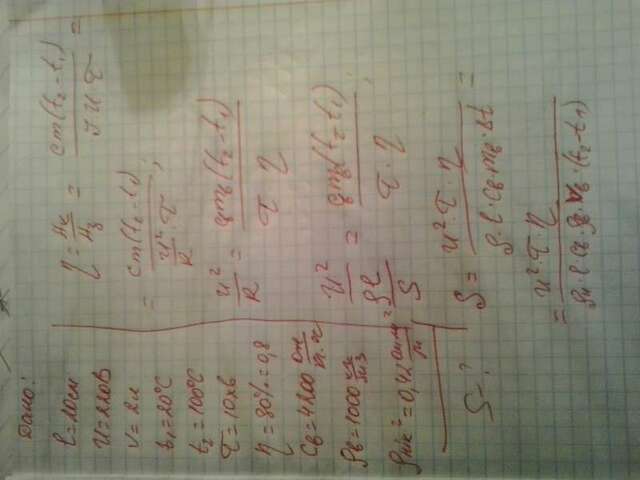 Дано:
l=10м
U=220В
V=2л
t₁=20°C
t₂=100°C
τ=10хв
η=80%=0,8
Cв=4200 Дж/кг·°C
ρв=1000 кг/м3
ρнік=0,42 Ом·мм²/м
S-?
η = Aк/Aз = cm(t₂-t₁)/IUτ =
= cm(t₂-t₁)/(U²/R · τ) ;
U²/R = cвmв(t₂-t₁)/τ η
U²/(ρl/S) = cвmв(t₂-t₁)/τ·η ;
S = U²·τ·η/ρ·l·Cв·mв·Δt =
= U²·τ·η/ρн·l·Cв·ρв·Vв·(t₂-t₁)